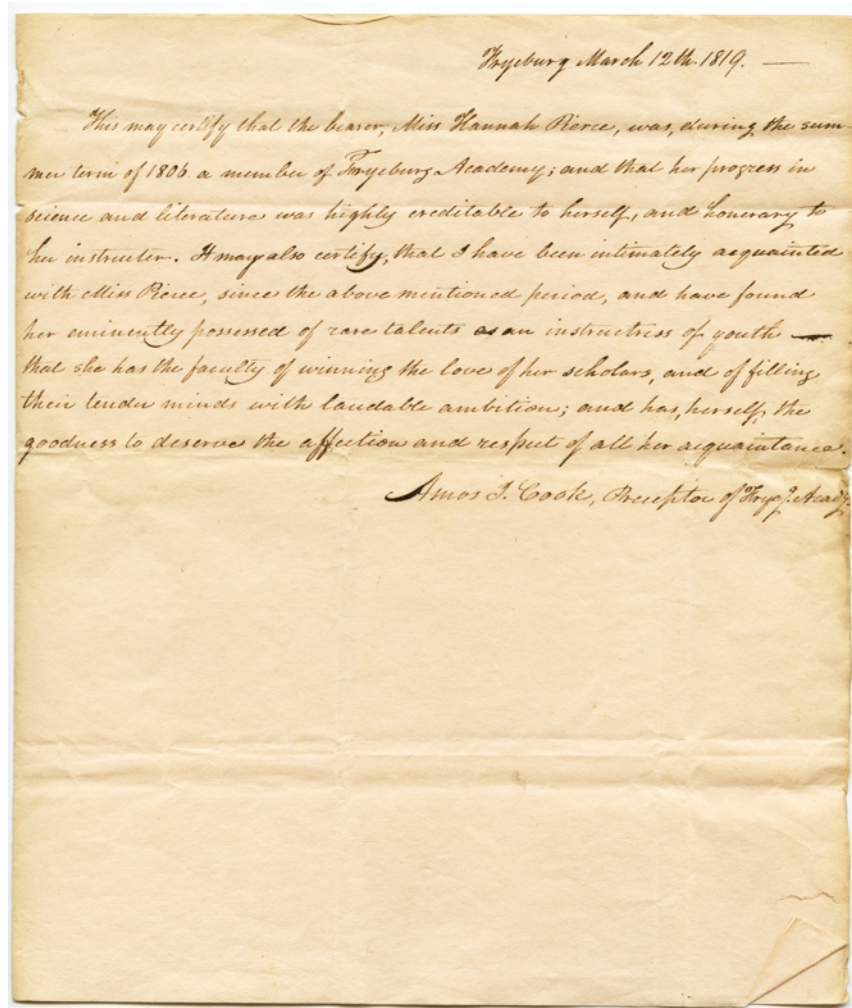 Fryeburg March 12th. 1819. —
This may certify that the bearer, Miss Hannah Pierce, was, during the sum-
mer term of 1806 a member of Fryeburg Academy; and that her progress in
science and literature was highly creditable to herself, and honorary to
her instructer. It may also certify, that I have been intimately acquainted
with Miss Pierce, since the above mentioned period, and have found
her eminently possessed of rare talents as an instructress of youth —
that she has the faculty of winning the love of her scholars, and of filling
their tender minds with laudable ambition; and has, herself, the
goodness to deserve the affection and respect of all her acquaintance.
Amos J. Cook, Preceptor of Fryeg. Acady.